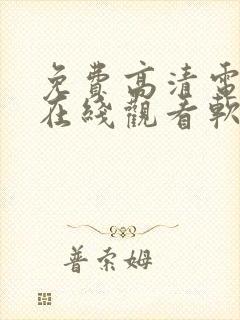 免費高清電
在綫觀看軟
普索姆